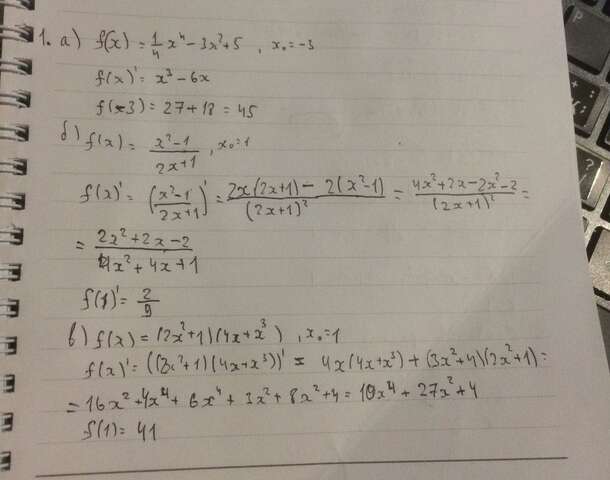 1. а) f(x) = 1/4 x⁴ - 3x² + 5 , x₀ = -3
f(x)' = x³ - 6x
f(-3) = 27 + 18 = 45
б) f(x) = (x²-1)/(2x+1) , x₀ = 1
f(x)' = ((x²-1)/(2x+1))' = (2x(2x+1) - 2(x²-1))/(2x+1)² = (4x²+2x-2x²-2)/(2x+1)² =
= (2x²+2x-2)/(4x²+4x+1)
f(1)' = 2/9
в) f(x) = (2x²+1)(4x+x³) , x₀ = 1
f(x)' = ((2x²+1)(4x+x³))' = 4x(4x+x³) + (3x²+4)(2x²+1) =
= 16x² + 4x⁴ + 6x⁴ + 3x² + 8x² + 4 = 10x⁴ + 27x² + 4
f(1) = 41